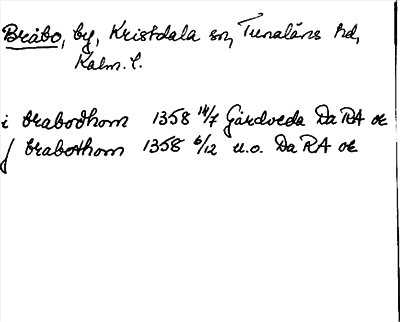 Bråbo, by, Kristdala sn, Tunaläns hd,
Kalm. l.
i brabodhom 1358 14/7 Gårdveda DaRA or
j brabothom 1358 6/12 u.o. DaRA or